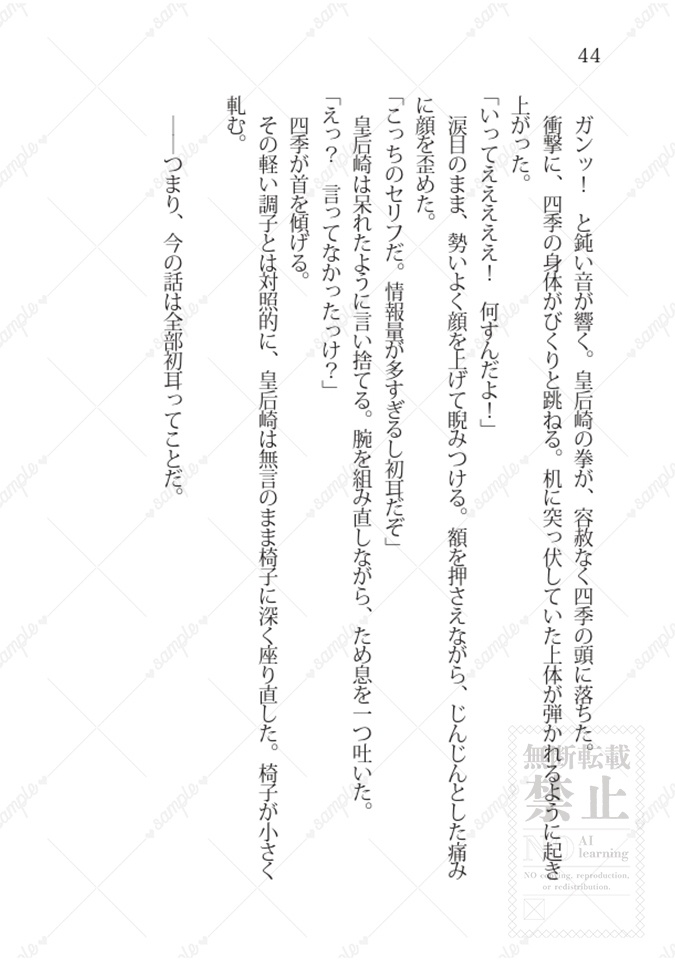 44
ガンッ！　と鈍い音が響く。皇后崎の拳が、容赦なく四季の頭に落ちた。
衝撃に、四季の身体がびくりと跳ねる。机に突っ伏していた上体が弾かれるように起き
上がった。
「いってえええええ！　何すんだよ！」
涙目のまま、勢いよく顔を上げて睨みつける。額を押さえながら、じんじんとした痛み
に顔を歪めた。
「こっちのセリフだ。情報量が多すぎるし初耳だぞ」
皇后崎は呆れたように言い捨てる。腕を組み直しながら、ため息を一つ吐いた。
「えっ？　言ってなかったっけ？」
四季が首を傾げる。
その軽い調子とは対照的に、皇后崎は無言のまま椅子に深く座り直した。椅子が小さく
軋む。
――つまり、今の話は全部初耳ってことだ。
無断転載
禁止
NO AI learning
NO copying, reproduction,
or redistribution.
sample